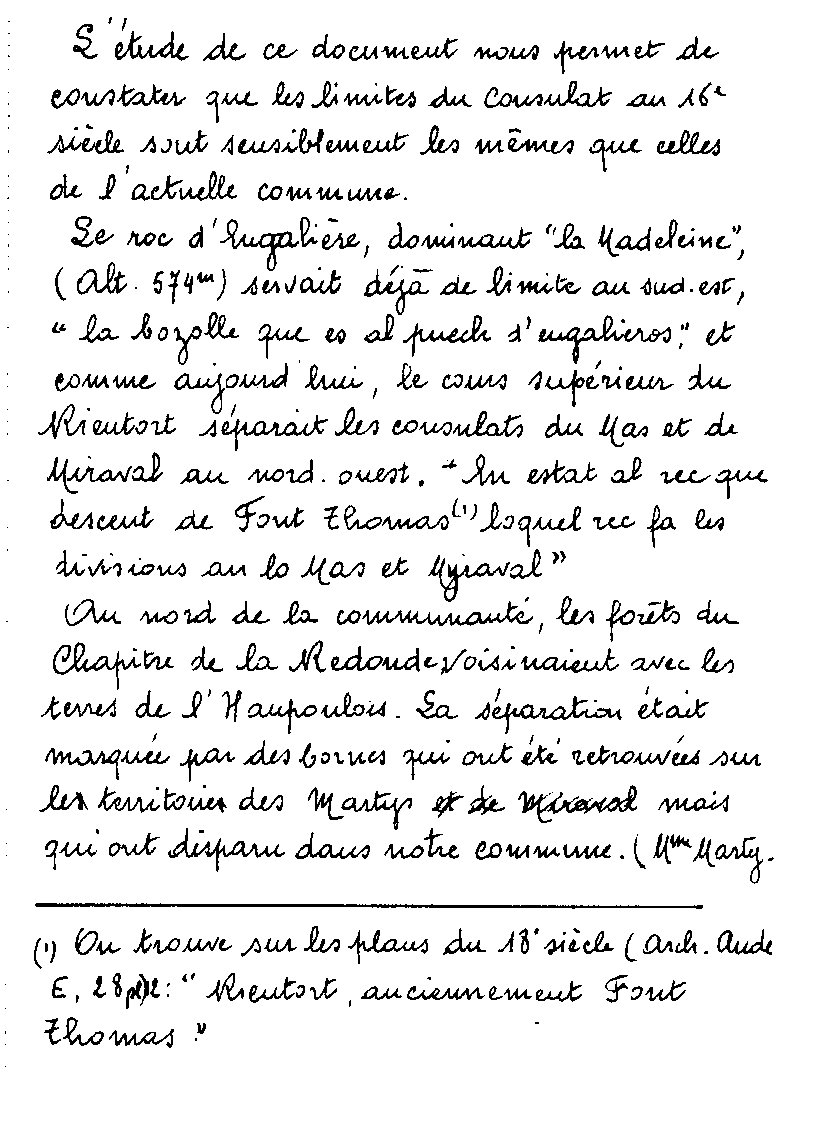 L'étude de ce document nous permet de
constater que les limites du Consulat au 16e
siècle sont sensiblement les mêmes que celles
de l'actuelle commune.
Le roc d'Engalière, dominant "la Madeleine",
(Alt. 574m) servait déjà de limite au sud.est,
"la bozolle que es al puech d'engalieros", et
comme aujourd'hui, le cours supérieur du
Rieutort séparait les consulats du Mas et de
Miraval au nord.ouest. "En estat al rec que
descent de Font Thomas(1) loquel rec fa les
divisions an lo Mas et Myraval"
Au nord de la communauté, les forêts du
Chapitre de la Redonde voisinaient avec les
terres de l'Haupoulois. La séparation était
marquée par des bornes qui ont été retrouvées sur
le territoire des Martys et de Miraval mais
qui ont disparu dans notre commune. (Mme Marty.
(1) On trouve sur les plans du 18e siècle (Arch. Aude
E, 28 : "Rieutort, anciennement Font
Thomas."